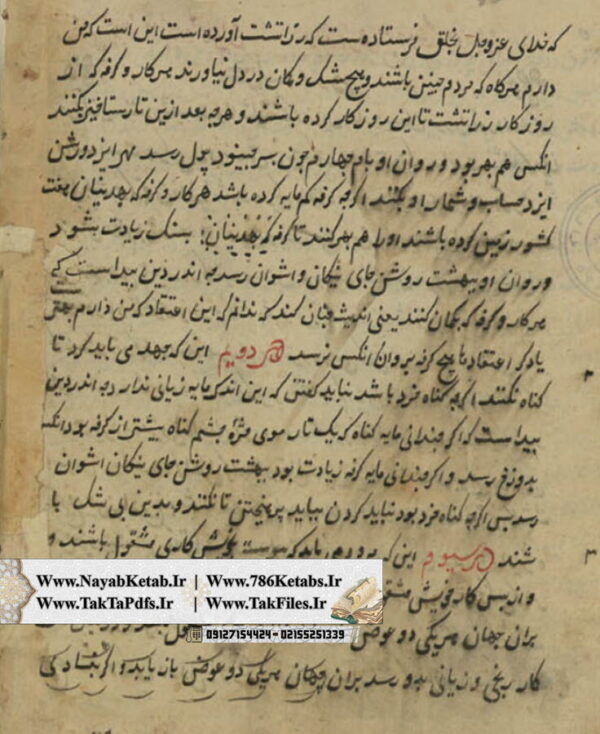 که خدای عزوجل بخلق فرستاده ست که زراتشت آورده است این است که من
دارم هرگاه که مردم چنین باشند و هیچ شک و گمان در دل نیاورند هر کار و کرفه که از
روزگار زراتشت تا این روزگار کرده باشند و هرچه بعد ازین تا رستاخیز بکنند
انکس هم بهر بود و روان او بام چهارم چون بسر چینود پول رسد مهر ایزد و رشن
ایزد حساب و شمار او بکنند اگرچه کرفه کم مایه کرده باشد هر کار و کرفه که بهدینان هفت
کشور زمین کرده باشند او را هم بهر کنند تا کرفه بهدینان بسنک زیادت بشود
و روان او ببهشت روشن جای نیکان و اشوان رسد چه اندر دین پیداست کی
هر کار و کرفه که بگمان کنند یعنی اندیشه چنان کند که ندانم که این اعتقاد که من دارم بهتر
یا دیگر اعتقادها هیچ کرفه بروان انکس نرسد در دویم این که جهد می باید کرد تا
گناه نکنند اگرچه گناه خرد باشد نباید گفتن که این اندک مایه زیانی ندارد چه اندر دین
پیداست که اگر چندانی مایه گناه که یک تار موی مژهٔ چشم گناه بیشتر از کرفه بود انکس
بدوزخ رسد و اگر چندانی مایه کرفه زیادت بود ببهشت روشن جای نیکان اشوان
رسد پس اگرچه گناه خرد بود نباید کردن بباید پرهیختن تا نکنند و بدین بی شک با
شند در سیوم این که باید که پیوسته بخویش کاری مشغول باشند و
Www.NayabKetab.Ir | Www.786Ketabs.Ir
Www.TakTaPdfs.Ir | Www.TakFiles.Ir
و از پس کار خویش
بران جهان هر یکی دو عوض
09127154424 - 02155251339
کار رنجی و زیانی بدو رسد بران جهان هر یکی دو عوض باز یابد و اگر